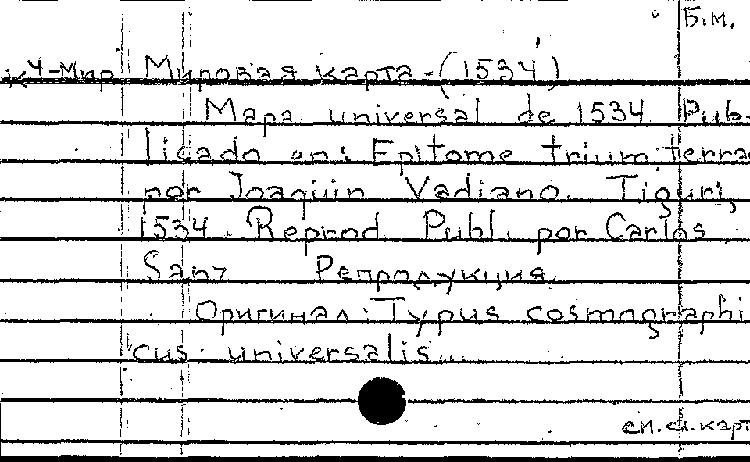 Б.м.
к4-Мир Мировая карта-(1534)
Mapa universal de 1534. Pub-
licado en: Epitome trium terra
por Joaquin Vadiano. Tiguri,
1534. Reprod. Publ. por Carlos
Sanz Репродукция.
Оригинал: Typus cosmographi
cus universalis...
см. сл. карт